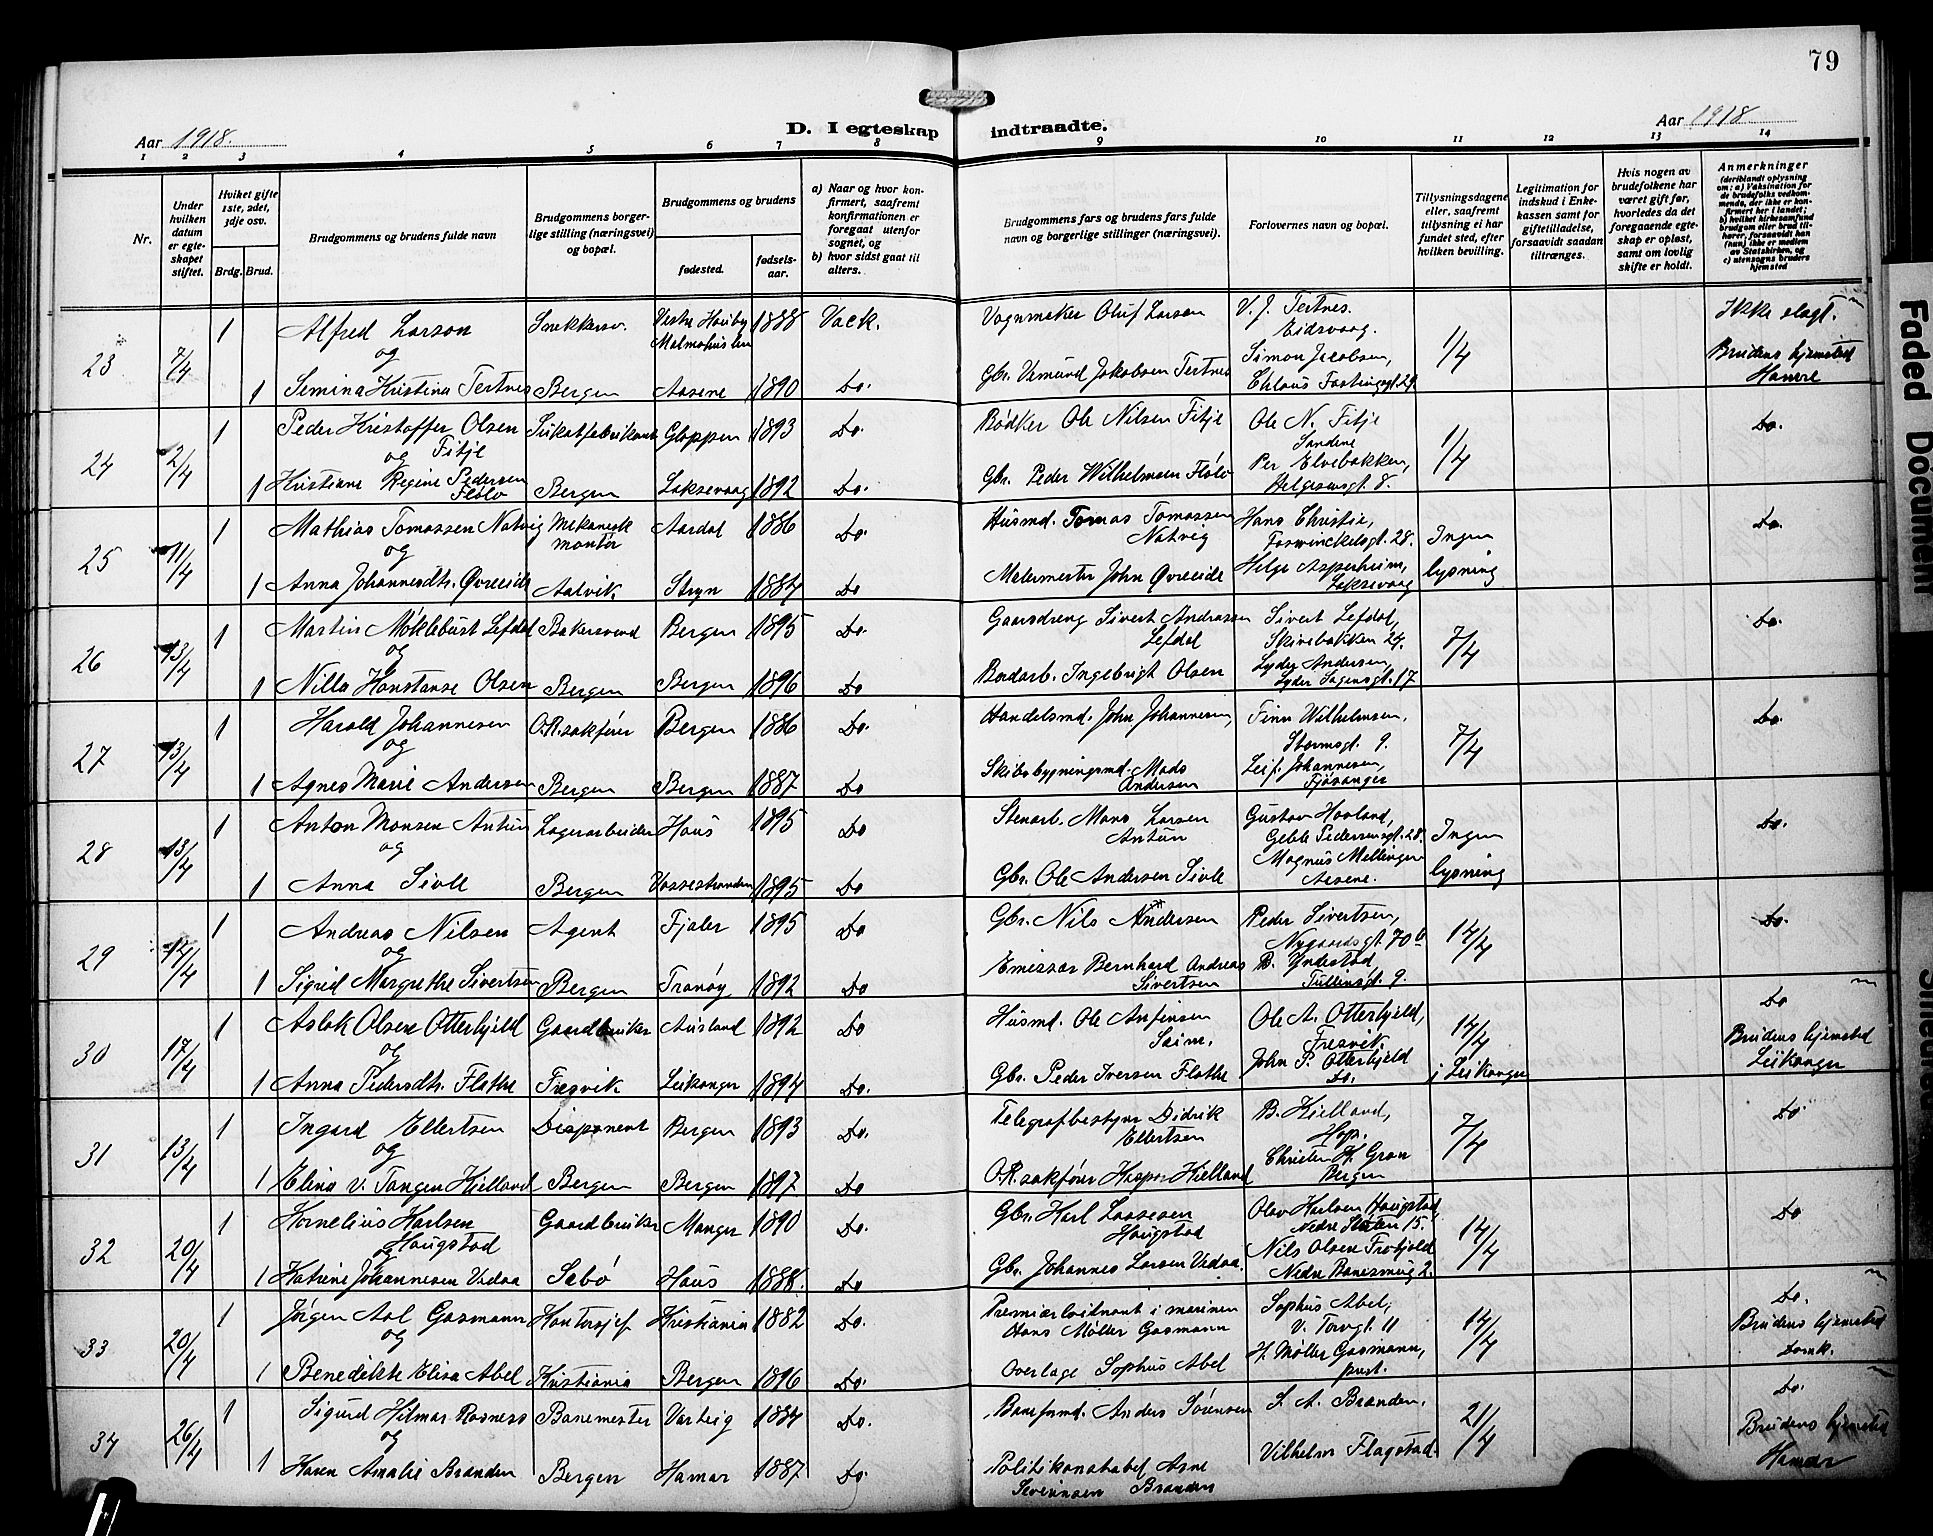 79
Aar 1918.
D. I egteskap indtraadte.
Aar 1918
1 2 3 4 5 6 7 8 9 10 11 12 13 14
Nr.
Under hvilken datum er egteskapet stiftet.
Hviket gifte 1ste, 2det, 3dje osv.
Brdg. Brud.
Brudgommens og brudens fulde navn
Brudgommens borgerlige stilling (næringsvei) og bopæl.
Brudgommens og brudens
fødested.
fødselsaar.
a) Naar og hvor konfirmert, saafremt konfirmationen er foregaat utenfor sognet, og
b) hvor sidst gaat til alters.
Brudgommens fars og brudens fars fulde navn og borgerlige stillinger (næringsvei).
Forlovernes navn og bopæl.
Tillysningsdagene eller, saafremt tillysning ei har fundet sted, efter hvilken bevilling.
Legitimation for indskud i Enkekassen samt for giftetilladelse, forsaavidt saadan tiltrænges.
Hvis nogen av brudefolkene har været gift før, hvorledes da det foregaaende egteskap er opløst, samt om lovlig skifte er holdt.
Anmerkninger
(deriblandt oplysning om: a) Vaksination for de brudefolks vedkommende, der ikke er konfirmert her i landet; b) hvilket kirkesamfund brudgom eller brud tilhører, forsaavidt han (hun) ikke er medlem av Statskirken, og c) utensogns bruders hjemsted
23 7/4 1 Alfred Larson Snekkersv. Vestre Malmøhus len 1888 Vack. Vognmaker Oluf Larsen V. J. Tertnes. Eidsvaag. 1/4 Ikke slagt.
og
1 Semina Kristina Tertnes Bergen Aasene 1890 Do. Gbr. Vemund Jakobsen Tertnes Simon Jacobsen, Chlaus Fastingsgt. 29 Brudens hjemsted Hamre
24 2/4 1 Peder Kristoffer Olsen Fitje Gloppen 1893 Do. Bødker Ole Nilsen Fitje Ole N. Fitje Sandene 1/4 Do.
og
1 Kristiane Regine Pedersen Fløløv Bergen Laksevaag 1892 Do. Gbr. Peder Wilhelmsen Per Elvebakken, Helgesensgt. 8.
25 11/4 1 Mathias Tomassen Natvig Mekanisk montør Aardal 1886 Do. Husmd. Tomas Tomassen Natvig Hans Christie, Foswinckelsgt. 28. Ingen lysning Do.
og
1 Anna Johannesdtr. Øvreeide Aalvik. Stryn 1884 Do Malermester John Øvreeide Helge Asperheim, Laksevaag
26 13/4 1 Martin Møklebust Lefdal Bakersvend Bergen 1895 Do. Gaardsdreng Sivert Andreassen Lefdal Sivert Lefdal, Skivebakken 24. 7/4 Do.
og
1 Nilla Konstanse Olsen Bergen Bergen 1896 Do Bordarb. Ingebrigt Olsen Lyder Andersen, Lyder Sagensgt. 17
27 13/4 1 Harald Johannesen O.R.sakfører Bergen 1886 Do. Handelsmd. John Johannesen, Finn Wilhelmsen. Stormsgt. 9. 7/4 Do.
og
1 Agnes Marie Andersen Bergen Bergen 1887 Do Skibsbygningsmd. Mads Andersen Leif. Johannesen, Fjøsanger
28 13/4 1 Anton Monsen Antun Lagerarbeider Haus 1895 Do Stenarb. Mons Larsen Antun Gustav Hovland, Geble Pedersensgt. 28. Ingen lysning Do.
og
1 Anna Sivle Bergen Vossestranden 1895 Do Gbr. Ole Andersen Sivle Magnus Mellingen Aasene.
29 14/4 1 Andreas Nilsen Agent Fjaler 1895 Do Gbr. Nils Andersen Peder Sivertsen, Nygaardsgt. 70 b 14/4 Do.
og
1 Sigrid Margrethe Sivertsen Bergen Tranøy 1892 Do Emissær Bernhard Andreas Sivertsen B. Yndestad Tullinsgt. 9.
30 17/4 1 Aslak Olsen Otterhjeld Gaardbruker Ausland 1892 Do Husmd. Ole Anfinsen Seim. Ole A. Otterhjeld, Fresvik. 14/4 i Leikanger Do
og
1 Anna Pedersdtr. Flathe Fresvik Leikanger 1894 Do. Gbr. Peder Iversen Flathe John P. Otterhjeld Do. Brudens hjemsted Leikanger
31 13/4 1 Ingard Ellertsen Disponent Bergen 1893 Do. Telegrafbestyrer Didrik Ellertsen B. Kielland, Hop. 7/4 Do.
og
1 Elina v. Tangen Kielland Bergen Bergen 1897 Do O.R.sakfører Kasper Kielland Christen K. Gran Bergen
32 20/4 1 Kornelius Karlsen Haugstad Gaardbruker Manger 1890 Do. Gbr. Karl Lassesen Haugstad Olav Karlsen Haugstad, Nedre Sletten 15. 14/4 Do
og
1 Katrine Johannesen Vedaa Sæbø Haus 1888. Do Gbr. Johannes Larsen Vedaa. Nils Olsen
33 20/4 1 Jørgen Aal Gasmann Kontorsjef Kristiania 1882 Do. Premiærløitnant i marinen Hans Møller Gasmann Sophus Abel, V. Torvgt. 11 14/4 Do.
og
1 Benedikte Elisa Abel Kristiania Bergen 1896 Do. Overlæge Sophus Abel H. Møller Gasmann, prest. Brudens hjemsted Domk.
34 26/4 1 Sigurd Hilmar Rosness Banemester Varteig 1884 Do. Baneformd. Anders Sørensen S. A. Brænden. 21/4 Do.
og
1 Karen Amalie Brænden Bergen Hamar 1887 Do. Politikonstabel Arne Severinsen Brænden Vilhelm Flagstad. Brudens hjemsted Hamar
Faded Document